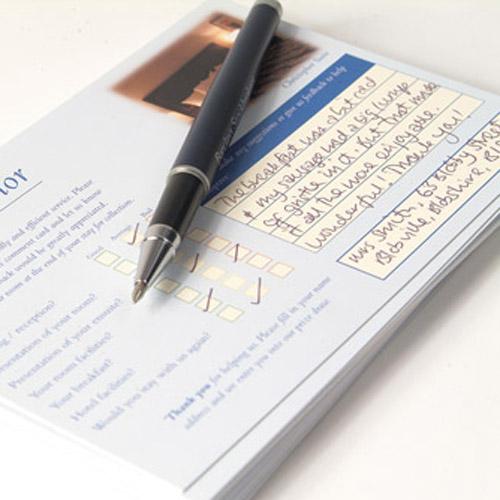 make my suggestions or give us feedback to help
The breakfast was a bit cold
& my sausage had a big lump
of gristle in it. But that made
it all the more enjoyable.
Wonderful! Thank you!
Mrs Smith, 65 Study Street
Blobville, Blobshire,
ior
and efficient service. Please
comment card and let us know
would be greatly appreciated.
room at the end of your stay for collection.
Good
/ reception?
Presentation of your room?
Presentation of your ensuite?
Your room facilities?
Your breakfast?
Hotel facilities?
Would you stay with us again?
Thank you for helping us. Please fill in your name
address and we enter you into our prize draw.